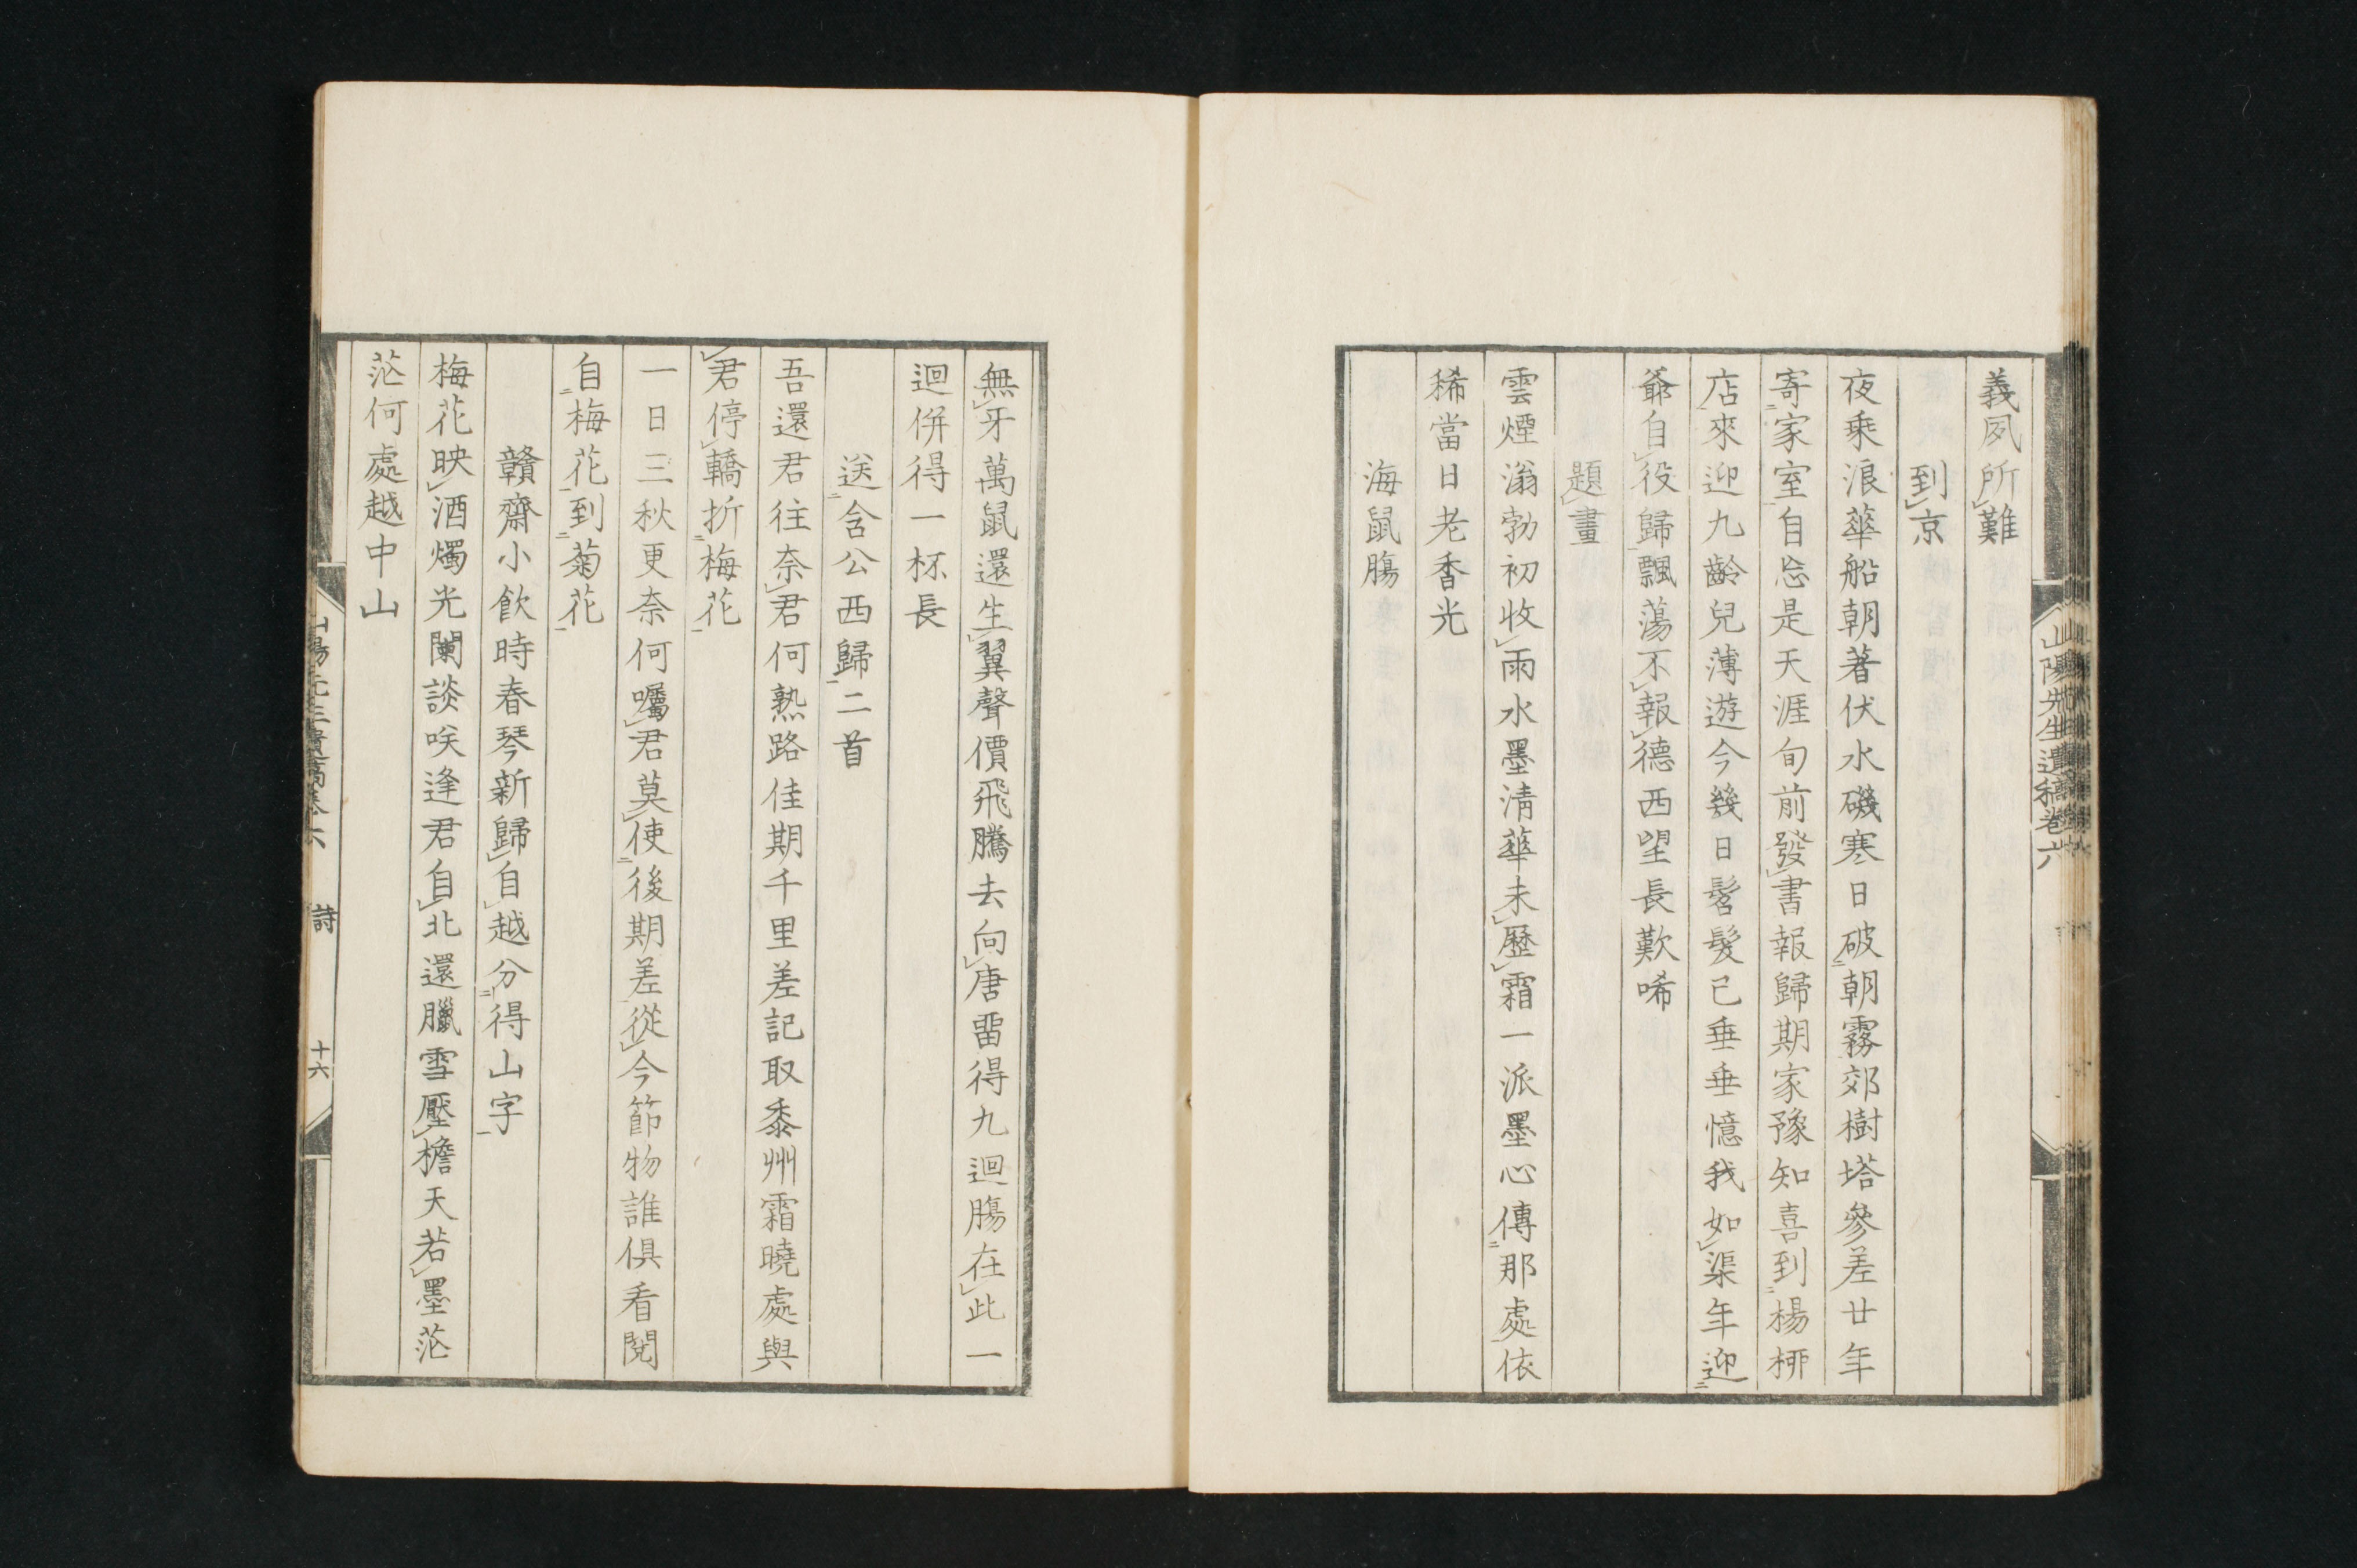 義夙所難
到京
夜乘浪華船朝著伏水磯寒日破朝霧郊樹塔參差廿年
寄家室自忘是天涯旬前發書報歸期家豫知喜到楊柳
店來迎九齡兒薄遊今幾日髫髮已垂垂憶我如渠年迎
爺自役歸飄蕩不報德西望長歎唏
題畫
雲煙滃勃初收雨水墨清華未歷霜一派墨心傳那處依
稀當日老香光
海鼠膓
山陽先生遺稿卷六
無牙萬鼠還生翼聲價飛騰去向唐畱得九迴膓在此一
迴併得一杯長
送含公西歸二首
吾還君往奈君何熟路佳期千里差記取黍州霜曉處與
君停轎折梅花
一日三秋更奈何囑君莫使後期差從今節物誰俱看閱
自梅花到菊花
贛齋小飲時春琴新歸自越分得山字
梅花映酒燭光闌談咲逢君自北還臘雪壓檐天若墨茫
茫何處越中山
山陽先生遺稿卷六 詩 十六